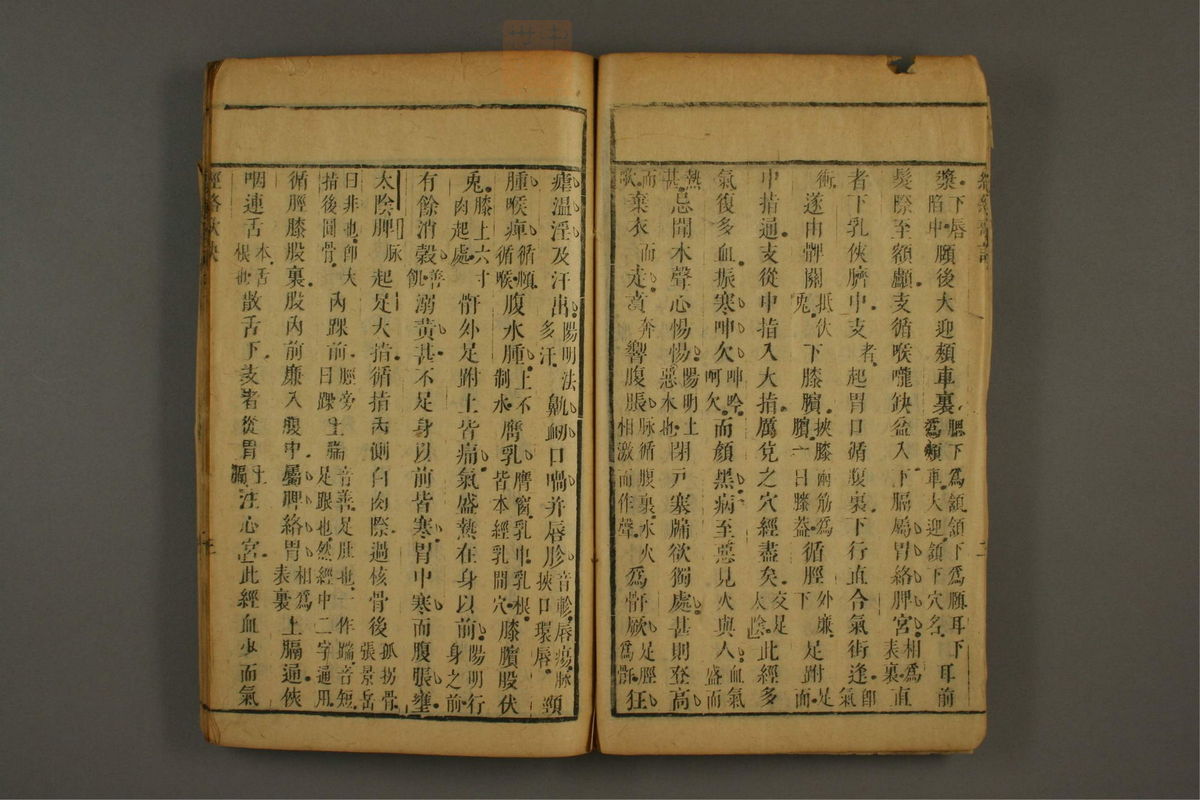 漿下唇陷中頤後大迎頰車裏腮下爲頷頷下爲頤耳下爲頰車大迎頷下穴名耳前
髮際至額顱支循喉嚨缺盆入下膈屬胃絡脾宮相爲表裏直
者下乳俠臍中支者起胃口循腹裏下行直合氣街逢卽氣
衝遂由髀關抵伏兔下膝臏挾膝兩筋爲臏一曰膝蓋循脛外廉下足跗足面
中指通支從中指入大指厲兌之穴經盡矣交足太陰此經多
氣復多血振寒呻欠呻吟呵欠而顏黑病至惡見火與人血氣盛而
熱甚忌聞木聲心惕惕陽明土惡木也閉戸塞牖欲獨處甚則登高
而歌棄衣而走賁奔響腹脹脉循腹裏水火相激而作聲爲骭厥足脛爲骭狂
瘧温淫及汗出陽明法多汗鼽衄口喎并唇胗音軫唇瘍脉挾口環唇頸
腫喉痺循頤循喉腹水腫土不制水膺乳膺窗乳中乳根皆本經乳間穴膝臏股伏
兔膝上六寸肉起處骭外足跗上皆痛氣盛熱在身以前陽明行身之前
有餘消穀善飢溺黃甚不足身以前皆寒胃中寒而腹張壅
太陰脾脉起足大指循指內側白肉際過核骨後孤拐骨張景岳
曰非也卽大指後圓骨內踝前脛旁曰踝上腨音善足肚也一作踹音短足跟也然經中二字通用
循脛膝股裏股內前廉入腹中屬脾絡胃相爲表裏上膈通俠
咽連舌本舌根也散舌下支者從胃上膈注心宮此經血少而氣
經絡歌訣